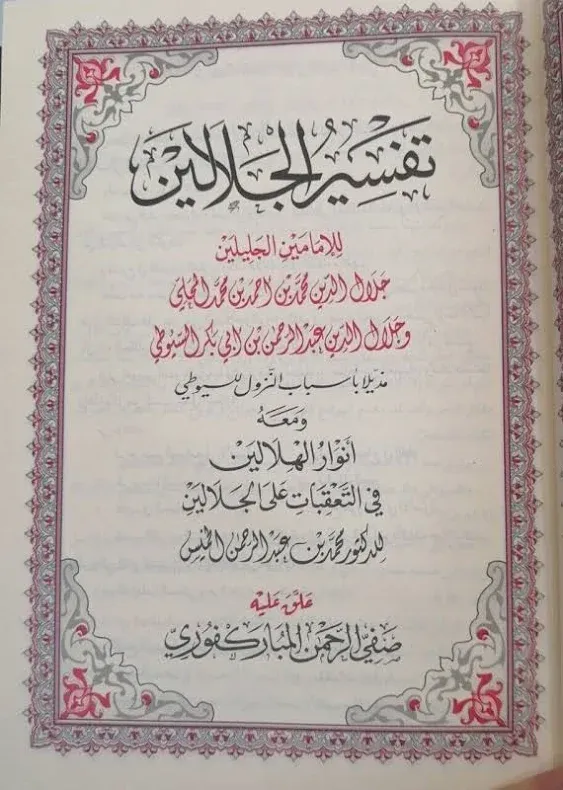 تَفْسِيرُ الجَلَالَيْن
لِلإِمَامَيْنِ الجَلِيلَيْنِ
جَلال الدّين محمّد بن احمد بن محمّد المحلي
وجَلال الدّين عبد الرحمن بن ابي بكر السيوطي
مذيلا باسباب النزول للسيوطي
وَمَعَهُ
أَنْوَارُ الهِلَالَيْنِ
في التَّعَقُّبَاتِ عَلَى الجَلَالَيْنِ
للدكتور محمّد بن عبد الرحمن الخميس
عَلَّقَ عَلَيْهِ
صَفِيُّ الرَّحمن المُبَارَكفُوري